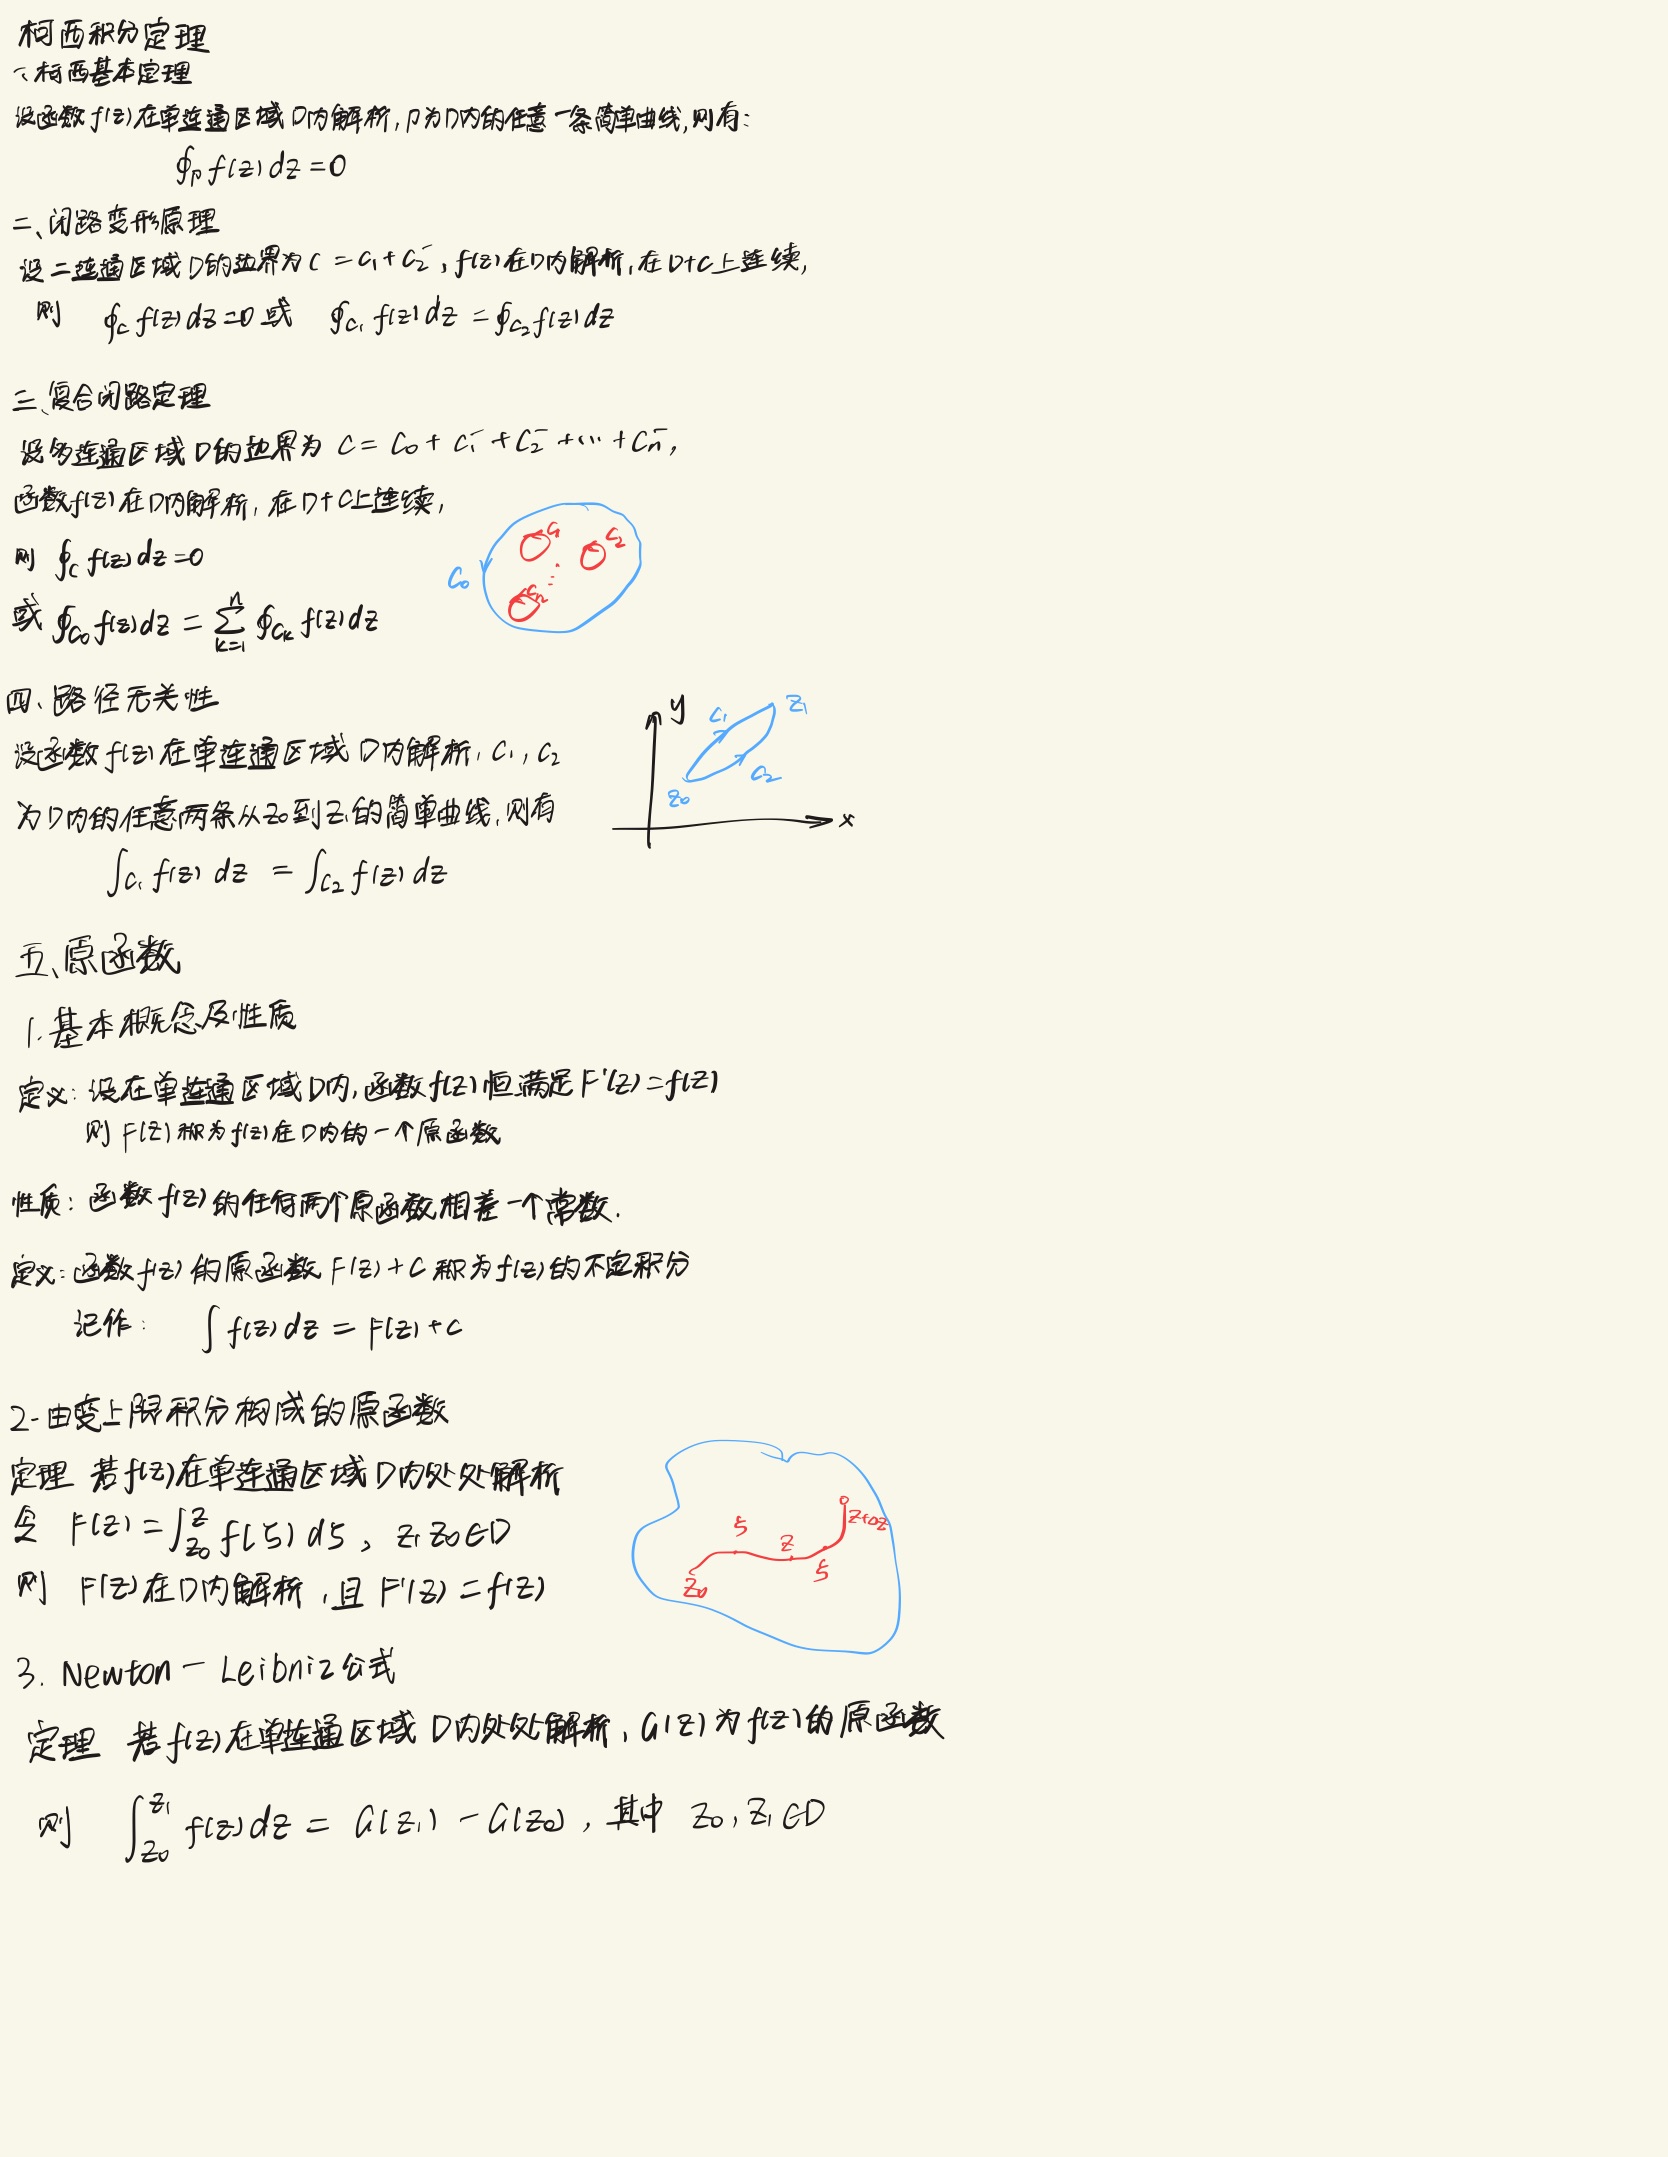 柯西积分定理
一、柯西基本定理
设函数f(z)在单连通区域D内解析,Γ为D内的任意一条简单曲线,则有:
∮_Γ f(z)dz=0
二、闭路变形原理
设二连通区域D的边界为C=C₁+C₂⁻,f(z)在D内解析,在D+C上连续,
则 ∮_C f(z)dz=0或 ∮_C₁ f(z)dz=∮_C₂ f(z)dz
三、复合闭路定理
设多连通区域D的边界为 C=C₀+C₁⁻+C₂⁻+⋯+Cₙ⁻,
函数f(z)在D内解析,在D+C上连续,
则 ∮_C f(z)dz=0
或 ∮_C₀ f(z)dz=∑_{k=1}^{n} ∮_Cₖ f(z)dz
C₀ C₁ C₂ ⋯
四、路径无关性
设函数f(z)在单连通区域D内解析,C₁,C₂
为D内的任意两条从z₀到z₁的简单曲线,则有
∫_C₁ f(z)dz = ∫_C₂ f(z)dz
y C₁ z₁
C₂
z₀
x
五、原函数
1.基本概念及性质
定义:设在单连通区域D内,函数f(z)恒满足F'(z)=f(z)
则F(z)称为f(z)在D内的一个原函数
性质:函数f(z)的任何两个原函数相差一个常数.
定义:函数f(z)的原函数F(z)+C称为f(z)的不定积分
记作: ∫f(z)dz=F(z)+C
2.由变上限积分构成的原函数
定理 若f(z)在单连通区域D内处处解析
令 F(z)=∫_{z₀}^{z} f(ζ)dζ, z,z₀∈D
则 F(z)在D内解析,且F'(z)=f(z)
ζ z z+Δz
z₀ ζ
3. Newton-Leibniz公式
定理 若f(z)在单连通区域D内处处解析,G(z)为f(z)的原函数
则 ∫_{z₀}^{z₁} f(z)dz=G(z₁)-G(z₀),其中 z₀,z₁∈D